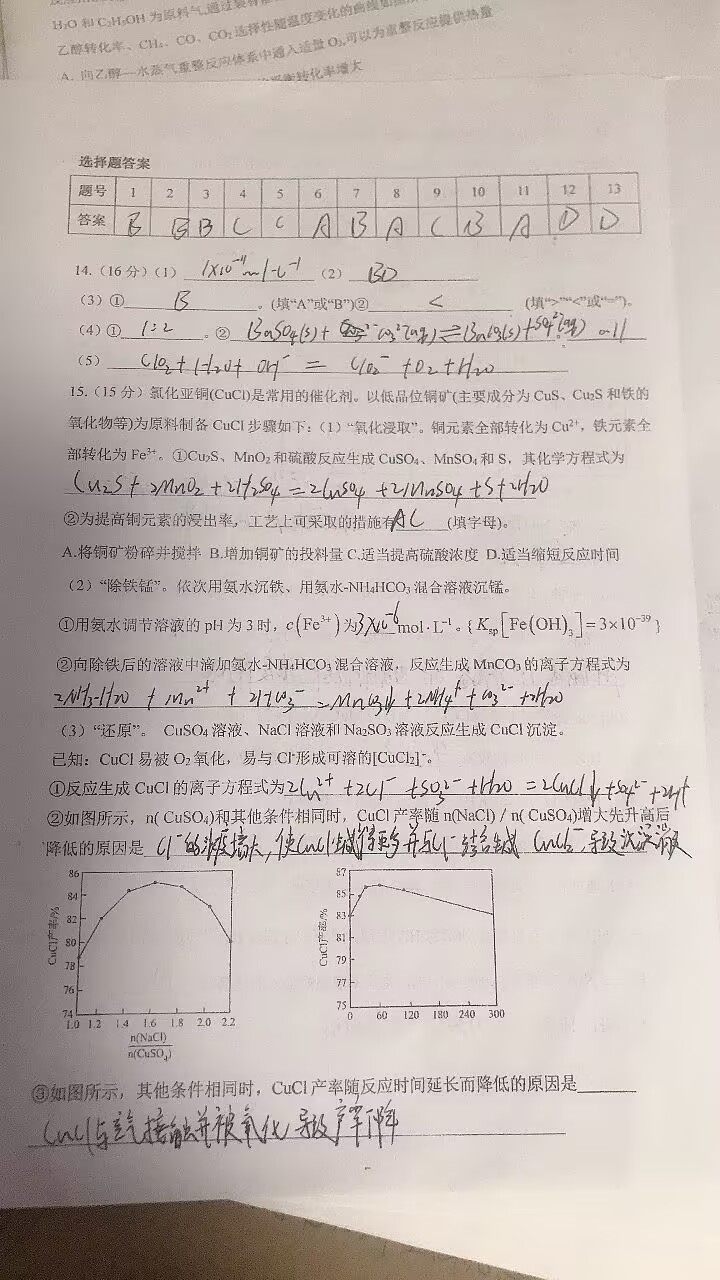 H₂O 和 C₂H₅OH 为原料气,通过装有催
乙醇转化率、CH₄、CO、CO₂ 选择性随温度变化的曲线如
A. 向乙醇—水蒸气重整反应体系中通入适量 O₂,可以为重整反应提供热量
转化率增大
选择题答案
题号 1 2 3 4 5 6 7 8 9 10 11 12 13
答案 B B B C C A B A C B A D D
14.(16 分)(1) (2) BD
(3)① B 。(填“A”或“B”)② < (填“>”“<”或“=”)。
(4)① 1:2 。② BaSO₄(s) + CO₃²⁻(aq) ⇌ BaCO₃(s) + SO₄²⁻(aq)
(5) + H₂O + OH⁻ = + O₂ + H₂O
15.(15 分)氯化亚铜(CuCl)是常用的催化剂。以低品位铜矿(主要成分为 CuS、Cu₂S 和铁的
氧化物等)为原料制备 CuCl 步骤如下:(1)“氧化浸取”。铜元素全部转化为 Cu²⁺,铁元素全
部转化为 Fe³⁺。①Cu₂S、MnO₂ 和硫酸反应生成 CuSO₄、MnSO₄ 和 S,其化学方程式为
Cu₂S + 2MnO₂ + 2H₂SO₄ = 2CuSO₄ + 2MnSO₄ + S + 2H₂O
②为提高铜元素的浸出率,工艺上可采取的措施有 AC (填字母)。
A.将铜矿粉碎并搅拌 B.增加铜矿的投料量 C.适当提高硫酸浓度 D.适当缩短反应时间
(2)“除铁锰”。依次用氨水沉铁、用氨水-NH₄HCO₃ 混合溶液沉锰。
①用氨水调节溶液的 pH 为 3 时,c(Fe³⁺)为 3×10⁻⁶ mol·L⁻¹。{Ksp[Fe(OH)₃]=3×10⁻³⁹}
②向除铁后的溶液中滴加氨水-NH₄HCO₃ 混合溶液,反应生成 MnCO₃ 的离子方程式为
2NH₃·H₂O + Mn²⁺ + 2HCO₃⁻ = MnCO₃↓ + 2NH₄⁺ + CO₃²⁻ + 2H₂O
(3)“还原”。 CuSO₄ 溶液、NaCl 溶液和 Na₂SO₃ 溶液反应生成 CuCl 沉淀。
已知:CuCl 易被 O₂ 氧化,易与 Cl⁻形成可溶的[CuCl₂]⁻。
①反应生成 CuCl 的离子方程式为 2Cu²⁺ + 2Cl⁻ + SO₃²⁻ + H₂O = 2CuCl↓ + SO₄²⁻ + 2H⁺
②如图所示,n( CuSO₄)和其他条件相同时,CuCl 产率随 n(NaCl) / n( CuSO₄)增大先升高后
降低的原因是 Cl⁻的浓度增大,使CuCl生成得更多并与Cl⁻结合生成 CuCl₂⁻,导致
86
84
82
80
78
76
74
CuCl产率/%
1.0 1.2 1.4 1.6 1.8 2.0 2.2
n(NaCl)
n(CuSO₄)
87
85
83
81
79
77
75
CuCl产率/%
0 60 120 180 240 300
③如图所示,其他条件相同时,CuCl 产率随反应时间延长而降低的原因是
CuCl与空气接触并被氧化 导致产率下降